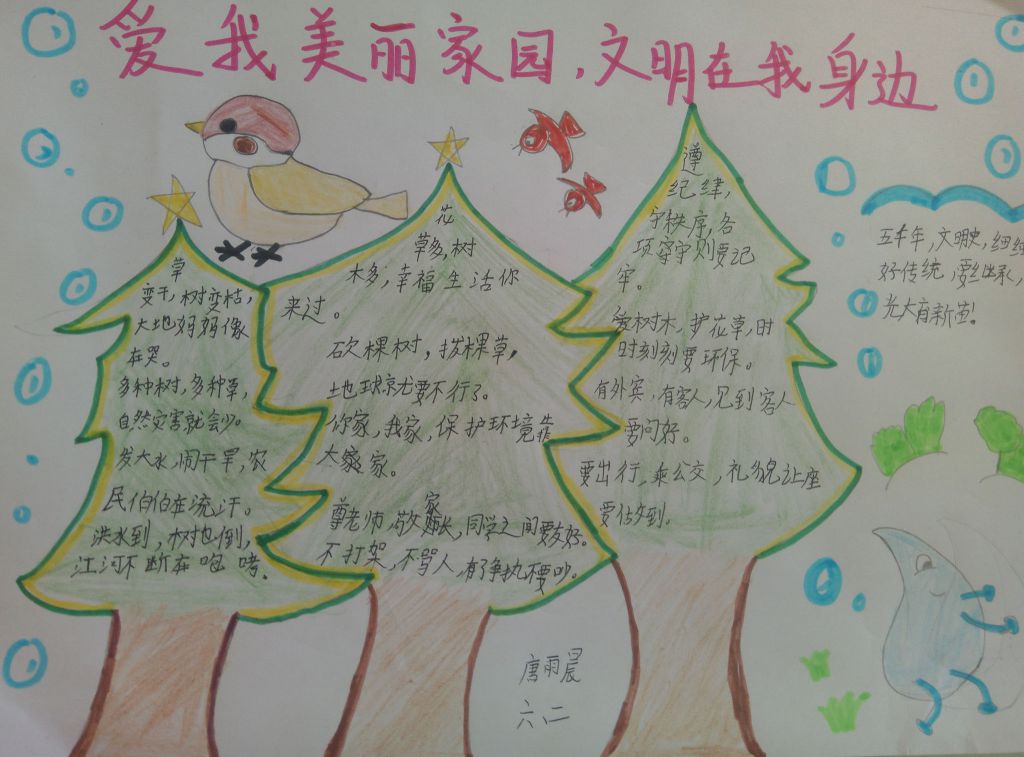 爱我美丽家园,文明在我身边
草
变干,树变枯,
大地妈妈像
在哭。
多种树,多种草,
自然灾害就会少。
发大水,闹干旱,农
民伯伯在流汗。
洪水到,树也倒,
江河不断在咆哮.
花
草多,树
木多,幸福生活你
来过。
砍棵树,拔棵草,
地球就要不行了。
你家,我家,保护环境靠
大家。
尊老师,敬家长,同学之间要友好。
不打架,不骂人,有了争执不要吵。
遵
纪律,
守秩序,各
项守则要记
牢。
爱树木,护花草,时
时刻刻要环保。
有外宾,有客人,见到客人
要问好。
要出行,乘公交,礼貌让座
要做到.
五千年,文明史,细细
好传统,要继承,
光大有新苗!
唐雨晨
六二